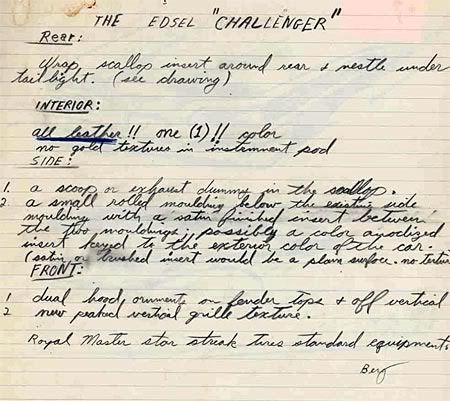 THE EDSEL "CHALLENGER"
Rear:
Wrap, scallop insert around rear & nestle under
tail light. (see drawing)
INTERIOR:
all leather!! one (1)!! color
no gold textures in instrument pod
SIDE:
1. a scoop or exhaust dummy in the scallop.
2 a small rolled moulding below the existing side
moulding with a satin finished insert between
the two mouldings, possibly a color anodized
insert keyed to the exterior color of the car.
(satin or brushed insert would be a plain surface. no texture
FRONT:
1 dual hood ornaments on fender tops & off vertical
2 new peaked vertical grille texture.
Royal Master star streak tires standard equipment.